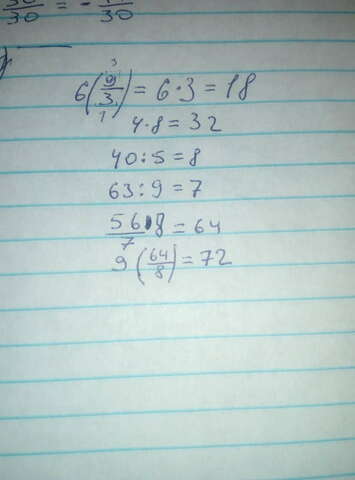 30/30 = - /30
3
6(9/3) = 6·3 = 18
1
4·8 = 32
40:5 = 8
63:9 = 7
56·8/7 = 64
9(64/8) = 72